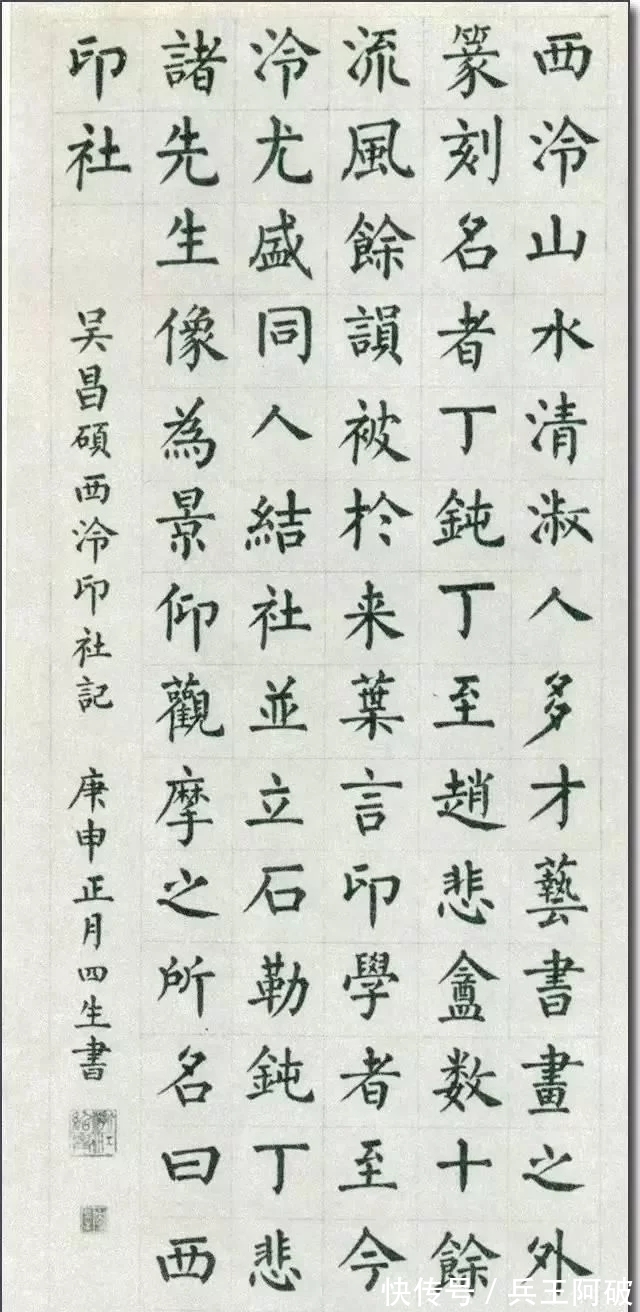 西泠山水清淑人多才藝書畫之外
篆刻名者丁鈍丁至趙悲盦数十餘
流風餘韻被於来葉言印學者至今
泠尤盛同人結社並立石勒鈍丁悲
諸先生像為景仰觀摩之所名曰西
印社
吴昌碩西泠印社記 庚申正月四生書
快传号 / 兵王阿破